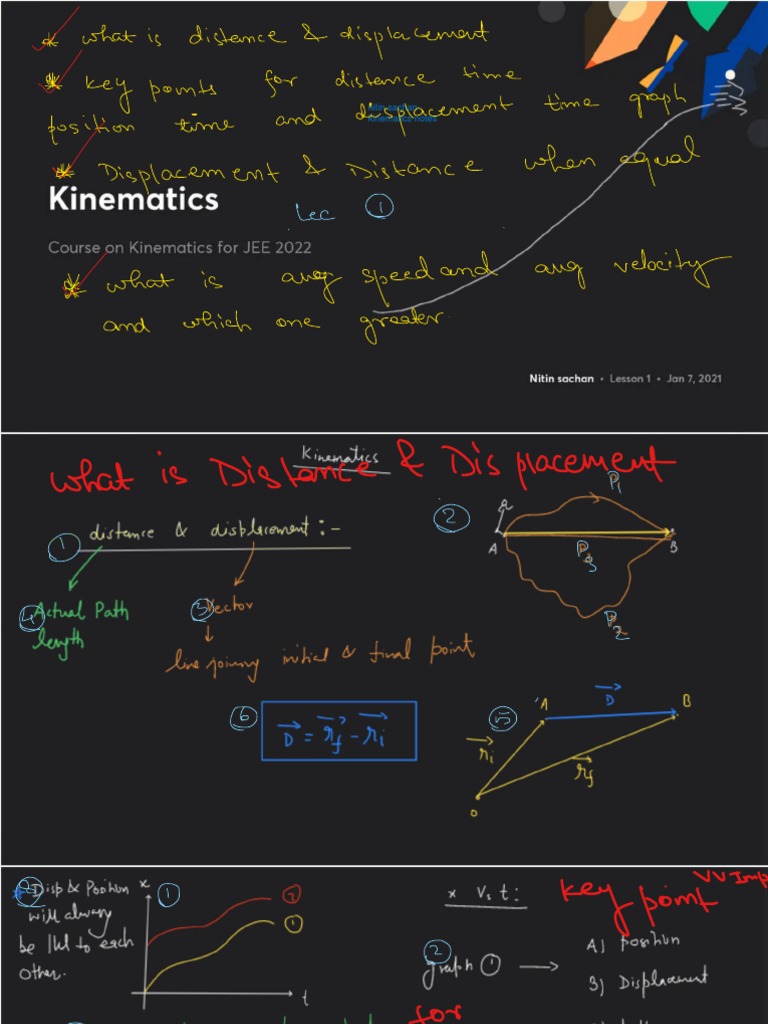 * what is distence & displacement
* key points for distance time
position time and displacement time graph
Nitin sachan
Kinematics notes
* Displacement & Distance when equal
Kinematics
Lec 1
Course on Kinematics for JEE 2022
* what is avg speed and avg velocity
and which one greater
Nitin sachan • Lesson 1 • Jan 7, 2021
Kinematics
what is Distance & Displacement
1 distance & displacement :-
2
P1
A
B
P3
P2
4 Actual Path
length
3 Vector
line joining initial & final point
6 D = rf - ri
5
A
D
B
ri
rf
O
2 Disp & Position
will always
be ||el to each
other.
x
1
2
1
t
x Vs t :
Key point
VV Imp
2
graph 1
A) position
B) Displacement
for